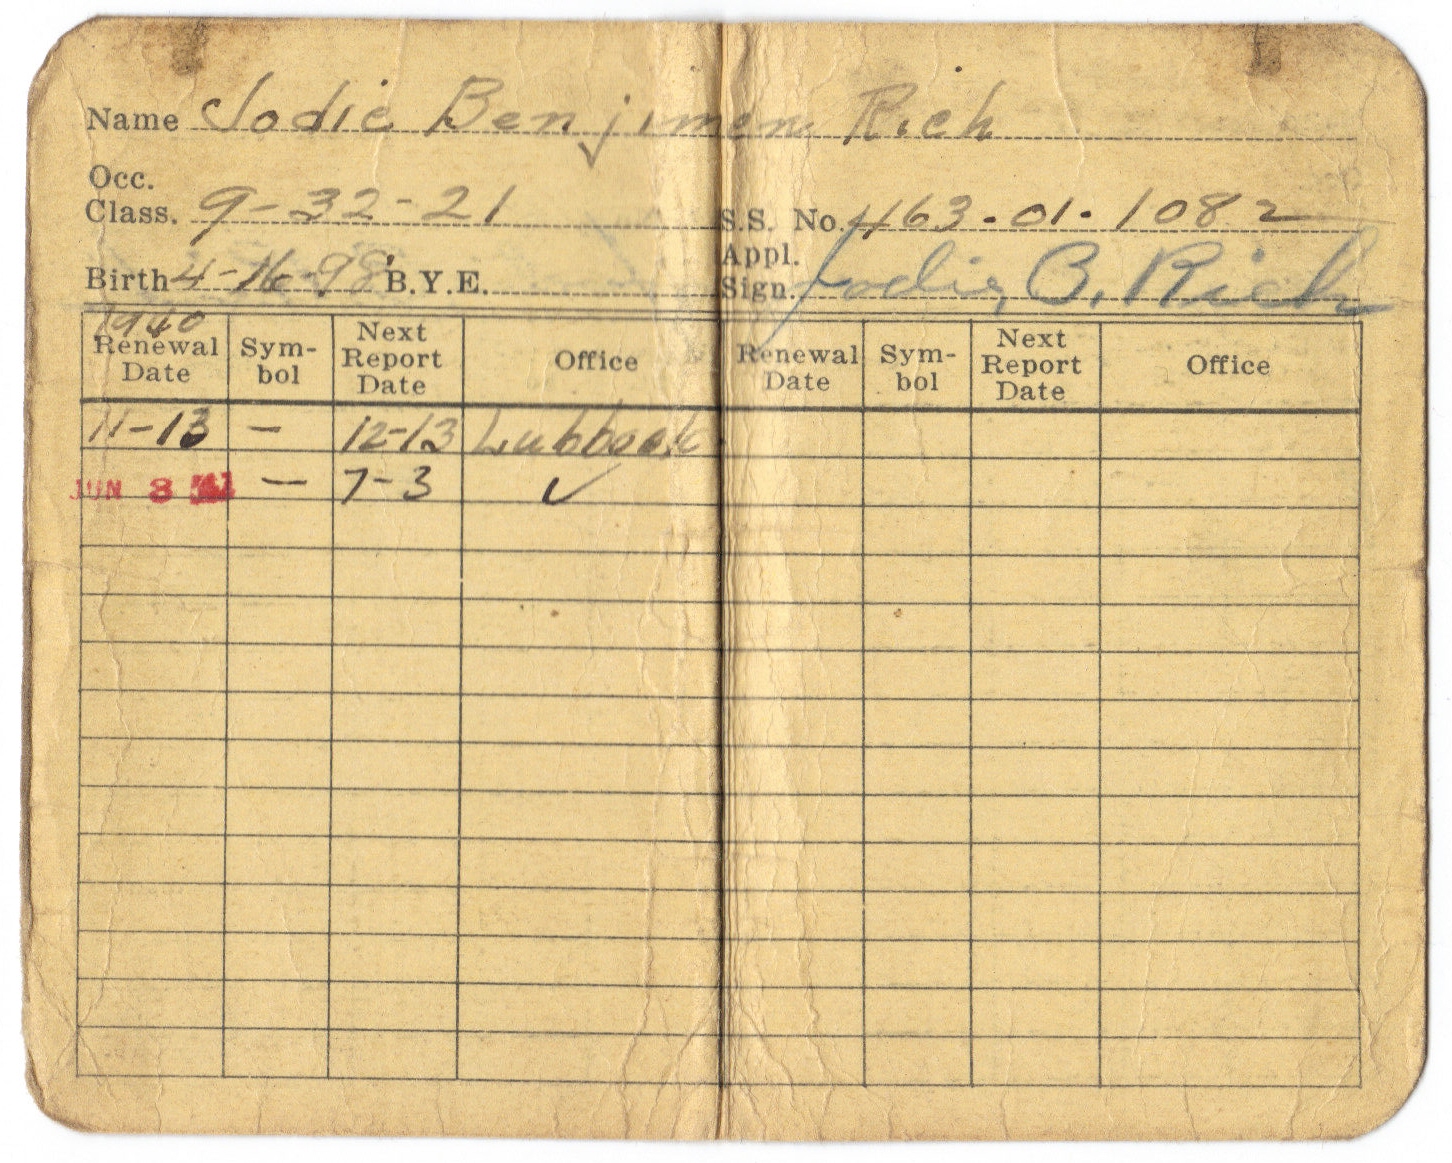 Name Jodie Benjimen Rich
Occ.
Class. 9-32-21 S.S. No. 463-01-1082
Birth 4-16-98 B.Y.E. Appl. Sign. Jodie B. Rich
1940
Renewal Date Symbol Next Report Date Office Renewal Date Symbol Next Report Date Office
11-13 — 12-13 Lubbock
JUN 3 41 — 7-3 ✓